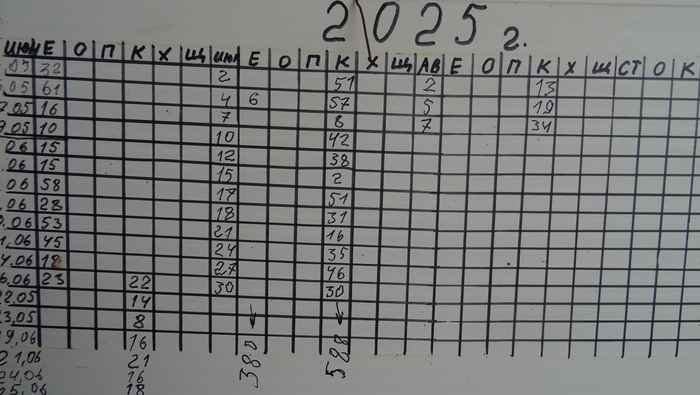 2025 г.
ИЮН Е О П К Х Щ ИЮЛ Е О П К Х Щ АВ Е О П К Х Щ СТ О К
32 2 51 2 13
.05 61 4 6 57 5 19
.05 16 7 8 7 34
.05 10 10 42
06 15 12 38
.06 15 15 2
.06 58 17 51
.06 28 18 31
.06 53 21 16
1.06 45 24 35
4.06 18 27 46
6.06 23 22 30 30
22.05 14
23.05 8
19.06 16 380 588
21,06 21
24,06 16
25.06 18